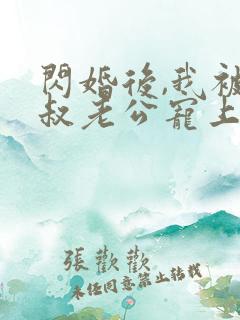 閃婚後,我被
叔老公寵上
張歡歡
未經同意禁止轉載